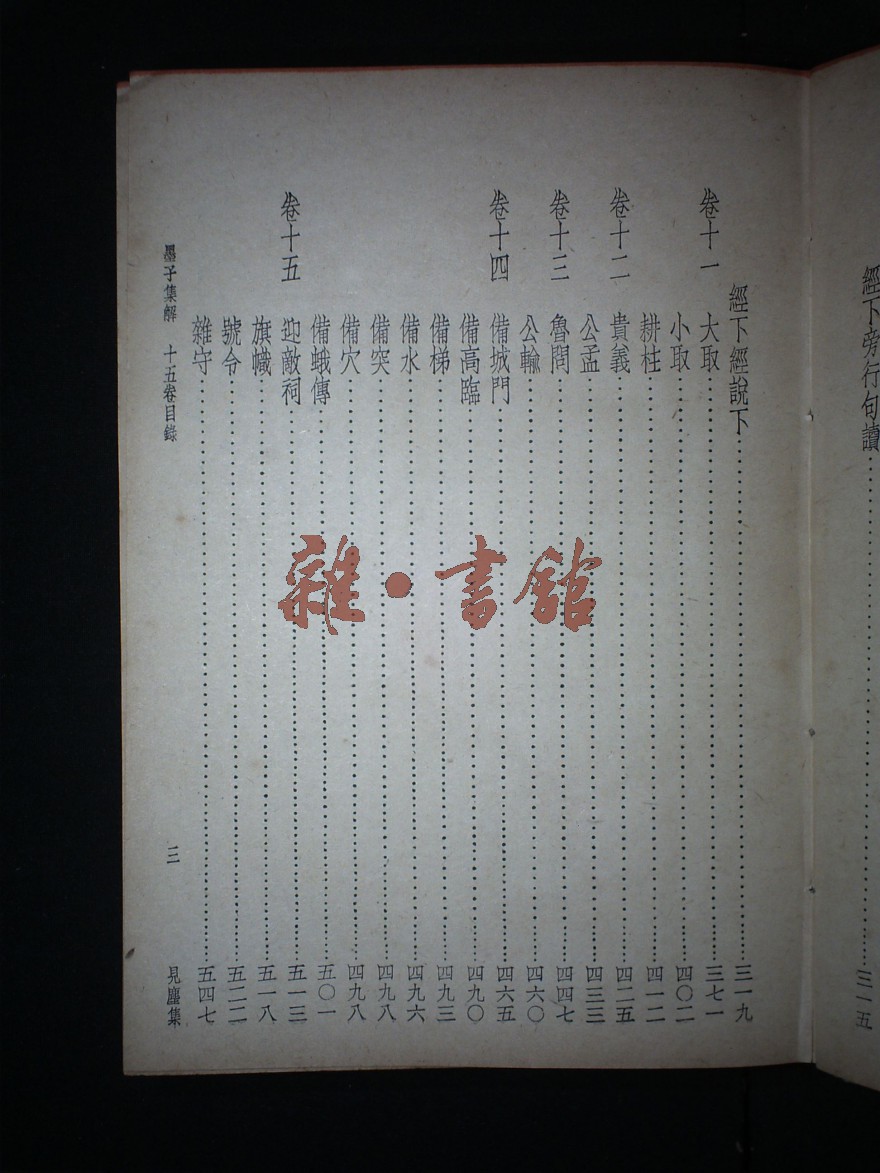 經下旁行句讀……三一五
經下經說下……三一九
卷十一 大取……三七一
小取……四〇二
耕柱……四一二
卷十二 貴義……四二五
公孟……四三三
卷十三 魯問……四四七
公輸……四六〇
卷十四 備城門……四六五
備高臨……四九〇
備梯……四九三
備水……四九六
備突……四九八
備穴……四九八
備蛾傳……五〇一
卷十五 迎敵祠……五一三
旗幟……五一八
號令……五二二
雜守……五四七
墨子集解 十五卷目錄 三 見塵集
雜·書館